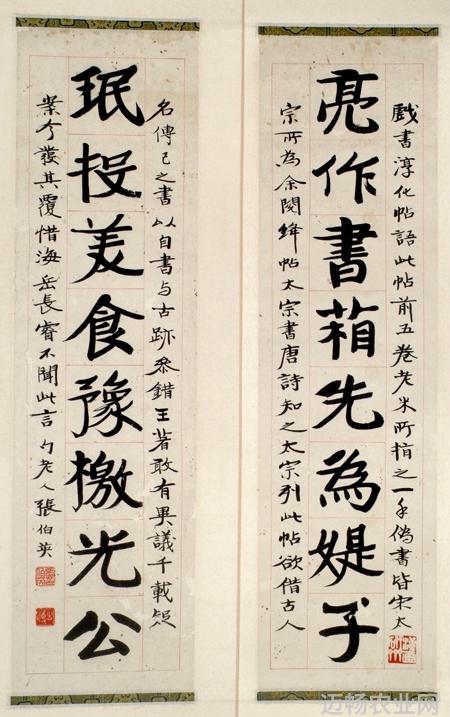 戲書淳化帖語此帖前五卷老米所指之一手偽書皆宋太
亮作書箱先為媞子
宗所為余閱絳帖太宗書唐詩知之太宗列此帖欲借古人
名傳己之書以自書与古跡叅錯王著敢有異議千載疑
珉投美食豫檄光公
案今發其覆惜海岳長睿不聞此言勺老人張伯英
迈畅农业网